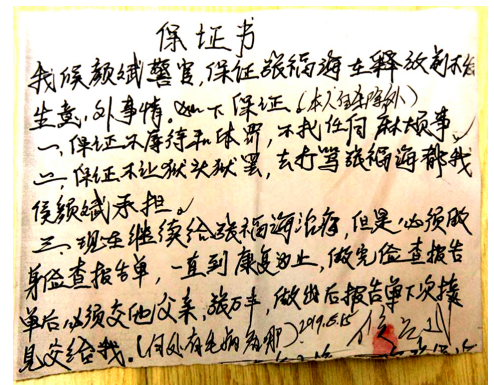 保证书
我候颜斌警官,保证张福海在释放前不发
生意外事情。如下保证(本人自杀除外)
一,保证不虐待和体罚,不找任何麻烦事。
二,保证不让狱头狱霸,去打骂张福海都我
侯颜斌承担。
三,现在继续给张福海治病,但是必须做
身体检查报告单,一直到康复为止,做完检查报告
单后必须交他父亲,张万丰,做出后报告单下次接
见交给我。(何处有毛病看那)2019.5.15